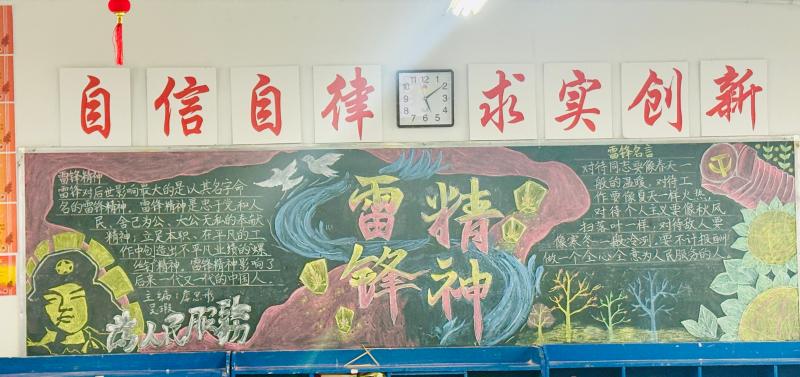 自信自律
求实创新
12 1 2 3 4 5 6 7 8 9 10 11
雷锋精神
雷锋对后世影响最大的是以其名字命
名的雷锋精神，雷锋精神是忠于党和人
民、舍己为公、大公无私的奉献
精神，立足本职、在平凡的工
作中创造出不平凡业绩的螺
丝钉精神，雷锋精神影响了
后来一代又一代的中国人。
主编：
为人民服务
雷锋
精神
雷锋名言
对待同志要像春天一
般的温暖，对待工
作要像夏天一样火热，
对待个人主义要像秋风
扫落叶一样，对待敌人要
像寒冬一般冷酷，要不计报酬
做一个全心全意为人民服务的人。